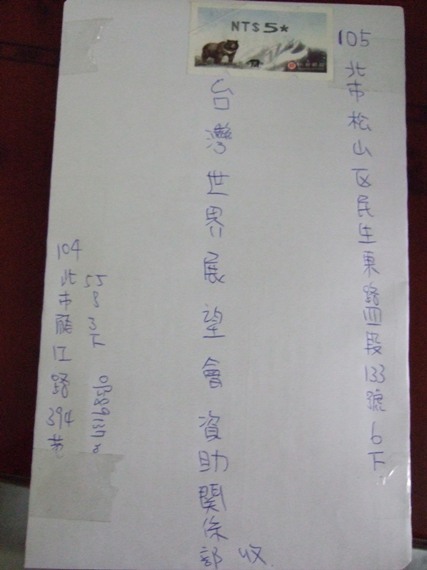 NT$ 5*
105
北市松山区民生東路四段133號6F
台灣世界展望會資助關係部 收
104
北市龍江路394巷
55号3F